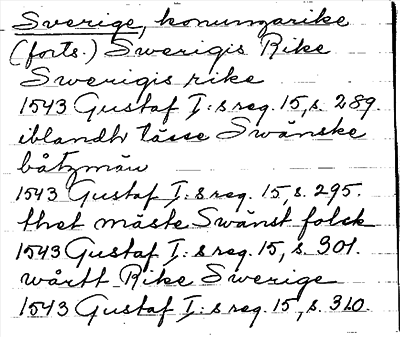 Sverige, konungarike
(forts.) Swerigis Rike
Swerigis rike
1543 Gustaf I:s reg. 15, s. 289.
iblandh tässe Swänske
båtzmän
1543 Gustaf I:s reg. 15, s. 295.
thet mäste Swänst folck
1543 Gustaf I:s reg. 15, s. 301.
wårtt Rike Swerige
1543 Gustaf I:s reg. 15, s. 310.